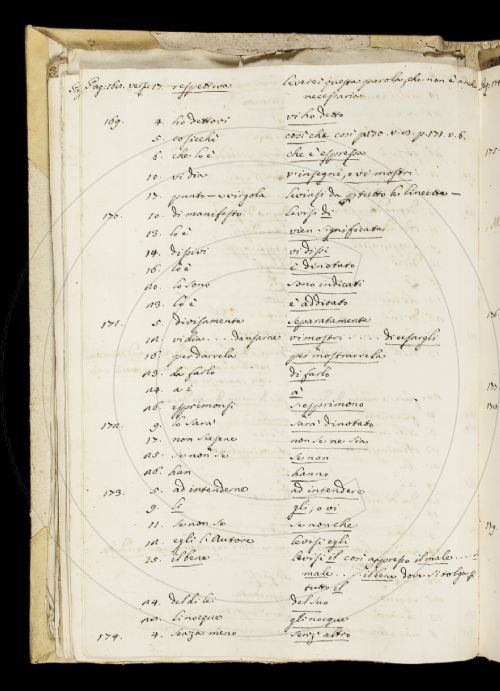 Pag. 168. vers. 17. respettiva leverei questa parola, che non è necessaria
169. 4. ho dettovi vi ho detto
5. cosicchè così che così p. 170. v. p. 171. v. 6.
6. che lo è che è espressa
10. vi dia v'insegni, o vi mostri
17. punto e virgola levinsi da tutto le lineette
170. 10. di manifesto levisi di
13. lo è vien significata
14. dissivi vi dissi
16. lo è è dinotato
20. lo sono sono indicati
23. lo è è additato
171. 5. divisamente separatamente
12. vi dia .... da usarne vi mostri .... di usargli
16. per darvela per mostrarvela
23. da farlo di farlo
24. a i a'
26. esprimonsi si esprimono
172. 9. lo sarà sarà dinotato
17. non siasene non se ne sia
25. se non se se non
26. han hanno
173. 5. ad intenderne ad intendere
9. li gli, o vi
11. se non se se non che
12. egli l'Autore levisi egli
15. il bene levisi il così appresso il male ...
male ... il bene dove si tolga
tutto il
24. del di lei del suo
li nocque gli nocque
174. 4. senza meno senz'altro